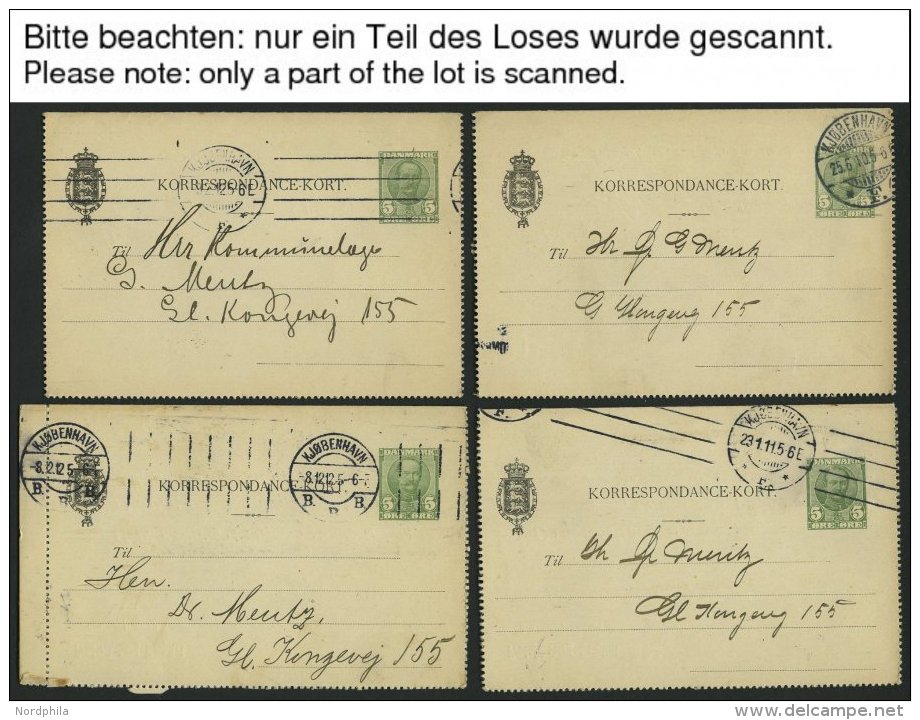 Bitte beachten: nur ein Teil des Loses wurde gescannt.
Please note: only a part of the lot is scanned.
KJØBENHAVN
DANMARK
KORRESPONDANCE-KORT.
5 5
ØRE ØRE
Til Hrr Kommunelæge
G. Mentz
Gl. Kongevej 155
KJØBENHAVN
25.6.10.5-6
F.
KORRESPONDANCE-KORT.
5 5
ØRE ØRE
Til Hr Dr G Mentz
Gl Kongevej 155
KJØBENHAVN
8.12.12 5-6
B. B.
KJØBENHAVN
8.12.12 5-6
B. B.
KORRESPONDANCE-KORT.
5 5
ØRE ØRE
Til
Herr.
Dr. Mentz,
Gl. Kongevej 155
KJØBENHAVN
23.1.11.5-6E
DANMARK
KORRESPONDANCE-KORT.
5 5
ØRE ØRE
Til Hr Dr Mentz
Gl Kongevej 155
Nordphila
delcampe.net